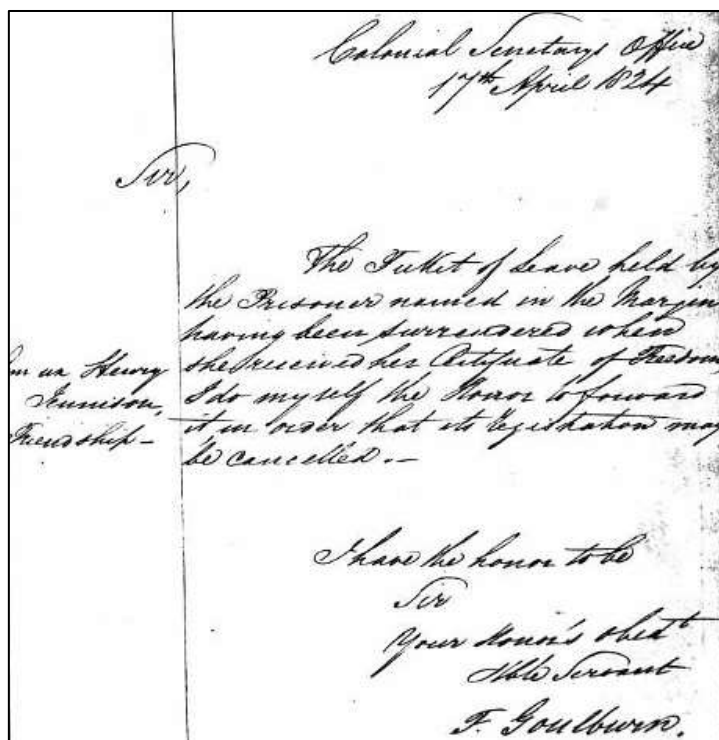 Colonial Secretarys Office
17th April 1824
Sir,
The Ticket of Leave held by
the Prisoner named in the Margin
having been surrendered when
she received her Certificate of Freedom
I do myself the Honor to forward
it in order that its Registration may
be cancelled.—
Henry
Friendship—
I have the honor to be
Sir
Your Honor's obedt
Hble Servant
F. Goulburn.